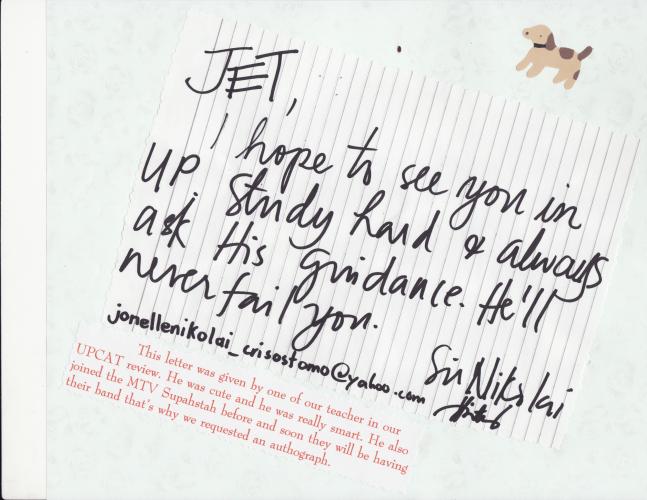 JET,
I hope to see you in
UP! Study hard & always
ask His guidance. He'll
never fail you.
jonellenikolai_crisostomo@yahoo.com
Sir Nikolai
This letter was given by one of our teacher in our
UPCAT review. He was cute and he was really smart. He also
joined the MTV Supahstah before and soon they will be having
their band that's why we requested an authograph.